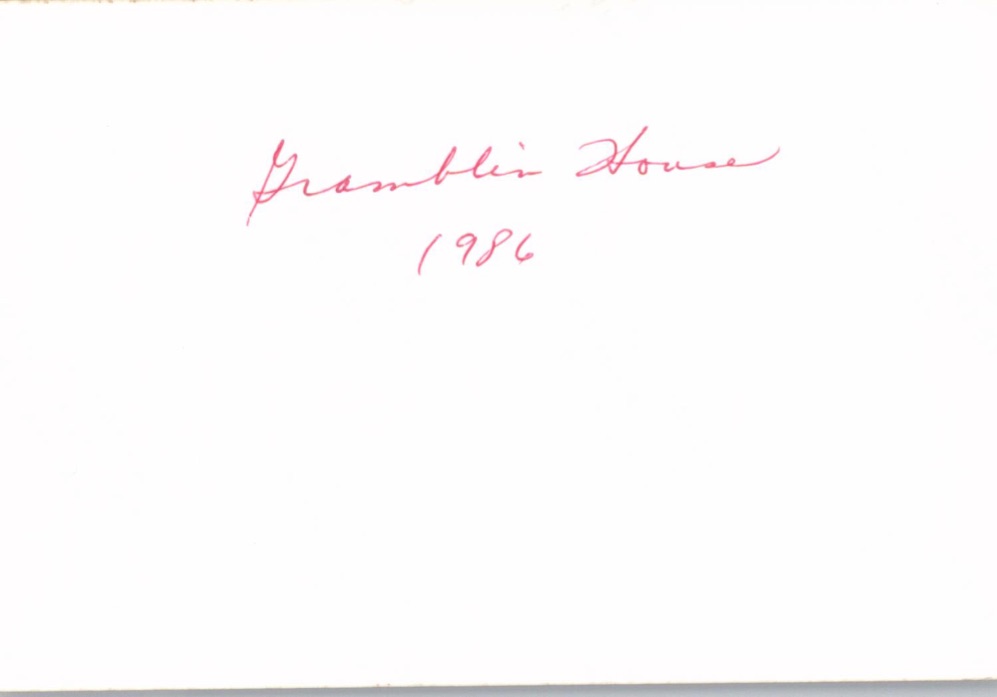 Gramblin House
1986